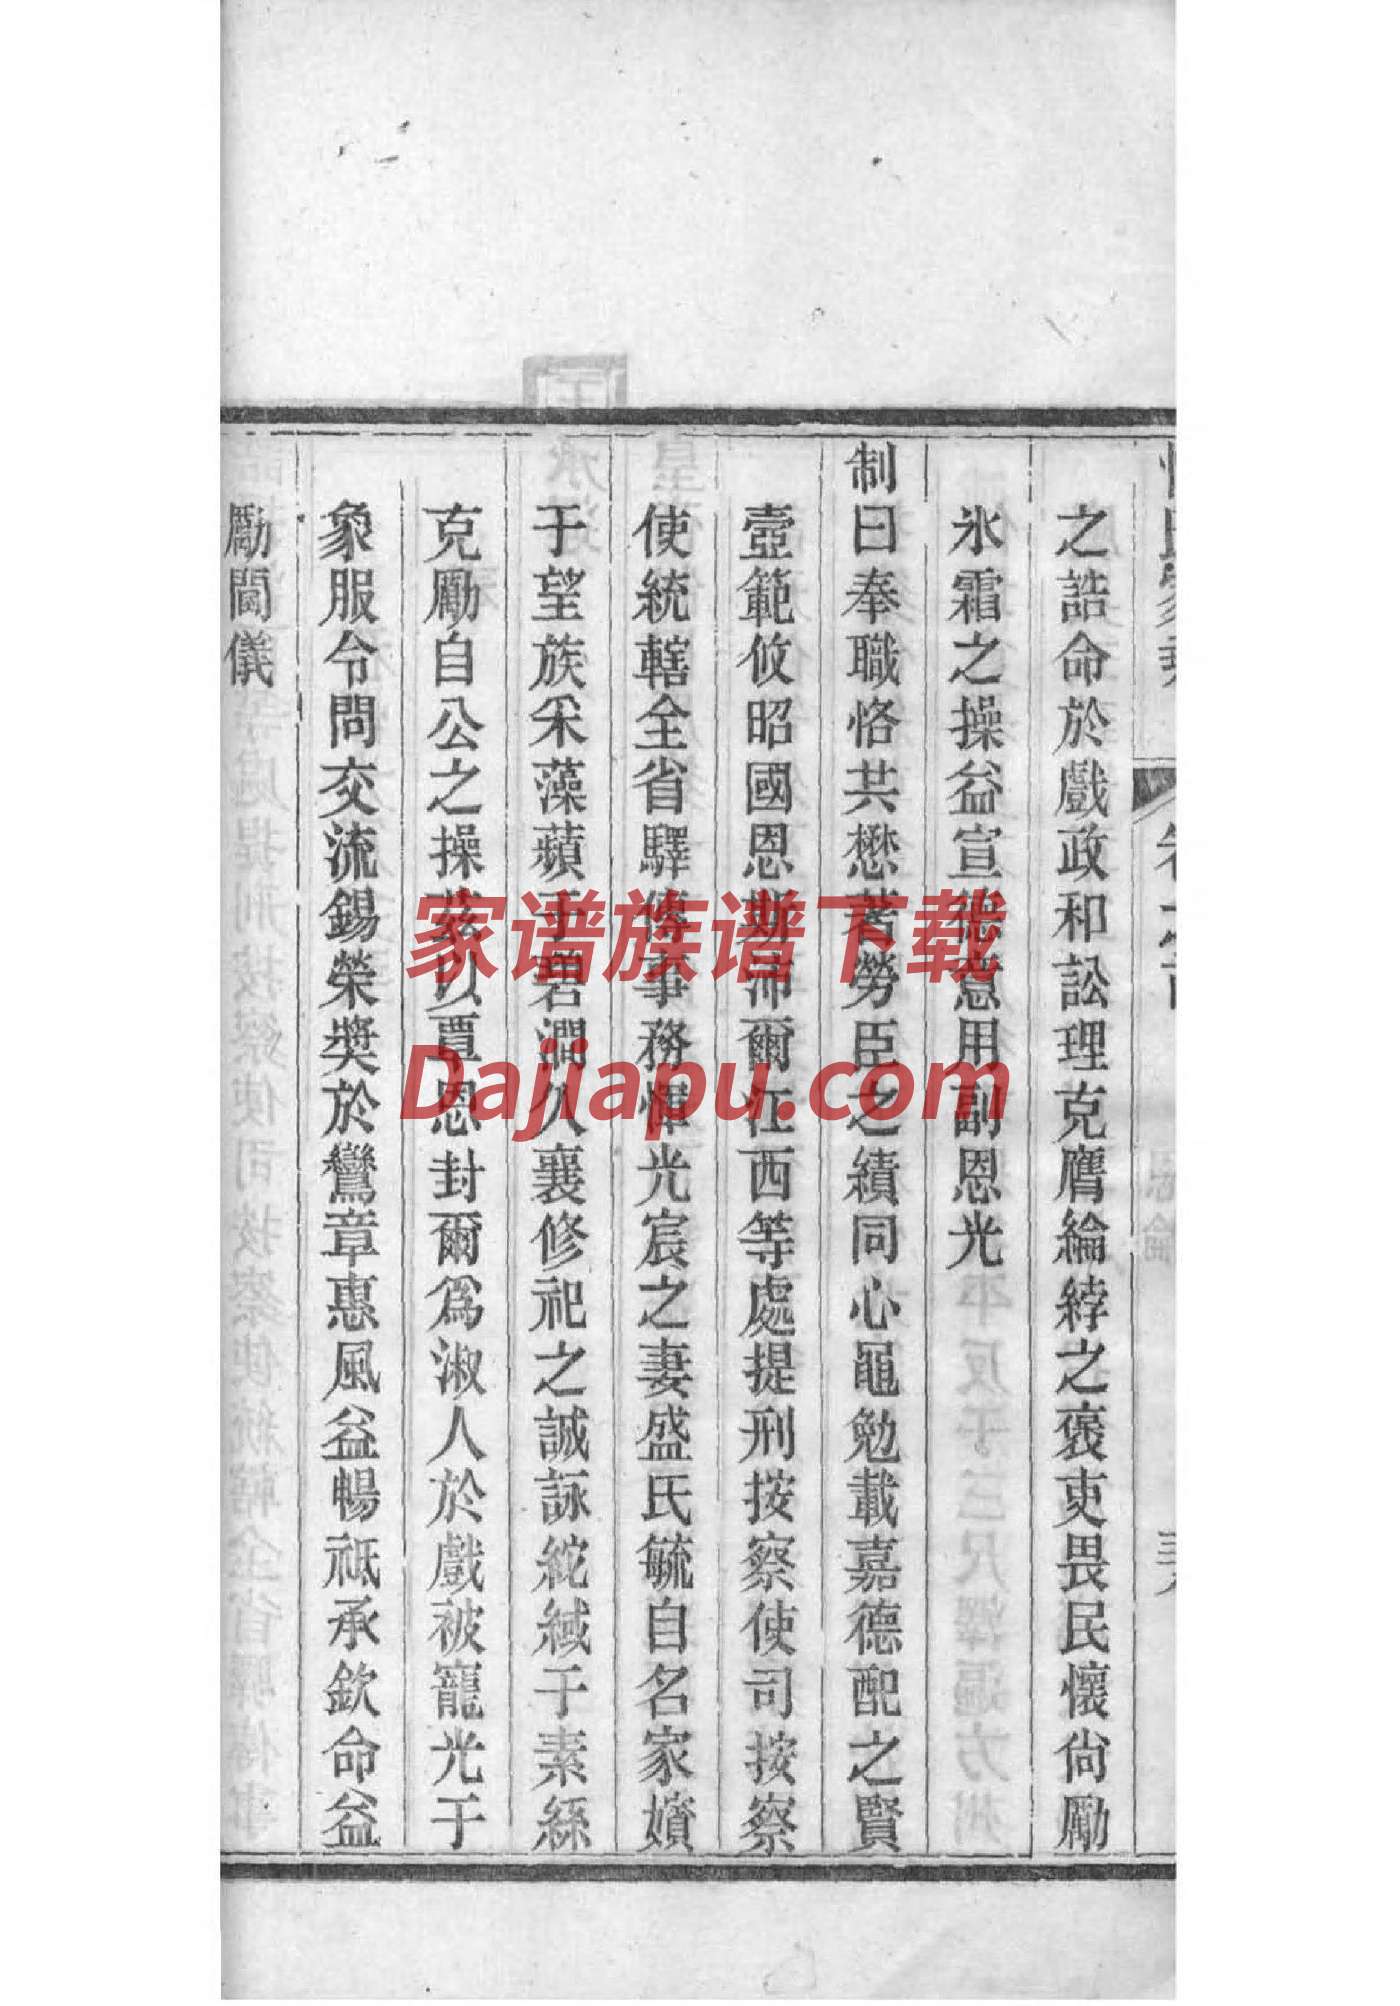 之誥命於戲政和訟理克膺綸綍之褒吏畏民懷尙勵
氷霜之操益宣德意用副恩光
制曰奉職恪共懋著勞臣之績同心黽勉載嘉德配之賢
壼範攸昭國恩斯沛爾江西等處提刑按察使司按察
使統轄全省驛傳事務惲光宸之妻盛氏毓自名家嬪
于望族采藻蘋于碧澗久襄修祀之誠詠紽緎于素絲
克勵自公之操茲以覃恩封爾爲淑人於戲被寵光于
象服令問交流錫榮奬於鸞章惠風益暢祗承欽命益
勵閫儀
家谱族谱下载
Dajiapu.com